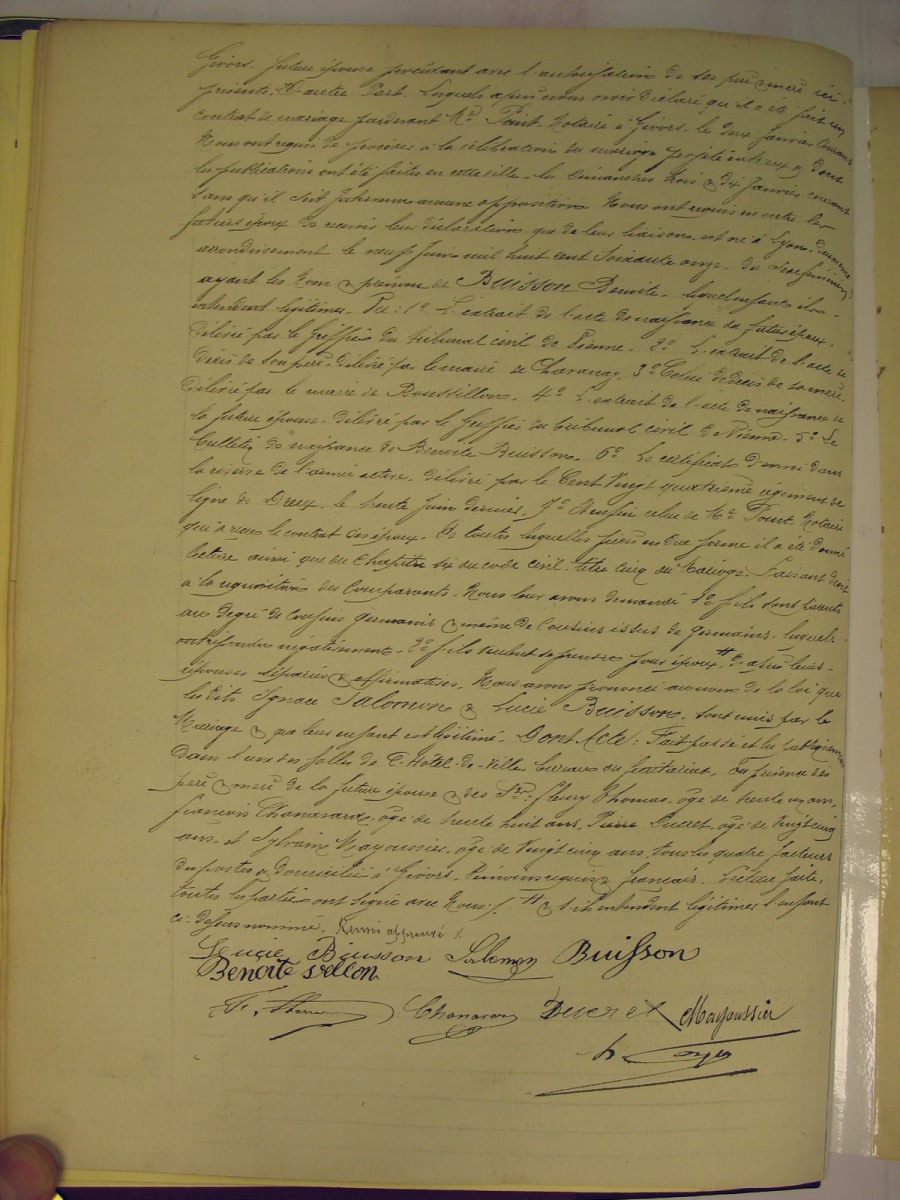 Givors. future épouse procédant avec l'autorisation de ses père & mère ici
présents. D'autre Part. Lesquels après nous avoir déclaré qu'il a été fait un
contrat de mariage pardevant Me Point. Notaire à Givors. le deux Janvier courant
Nous ont requis de procéder à la célébration du mariage projeté entr'eux & dont
les publications ont été faites en cette ville. les dimanches trois & dix Janvier courant
sans qu'il soit parvenu aucune opposition. Nous ont requis en outre les
futurs époux de recevoir leur déclaration que de leur liaison. est né à Lyon. deuxième
arrondissement le neuf Juin mil huit cent soixante onze. du sexe féminin
ayant les nom & prénom de Buisson Benoite. lequel enfant ils
entendent légitimer. Vu: 1o L'extrait de l'acte de naissance du futur époux.
délivré par le Greffier du tribunal civil de Vienne. 2o L'extrait de l'acte de
décès de son père. délivré par le maire de Chavanay. 3o Celui de décès de sa mère.
délivré par le maire de Roussillon. 4o L'extrait de l'acte de naissance de
la future épouse. délivré par le Greffier du tribunal civil de Vienne. 5o Le
bulletin de naissance de Benoite Buisson. 6o Le certificat d'envoi dans
la réserve de l'armée active. délivré par le Cent Vingt quatrième régiment de
ligne de Dreux. le trente Juin dernier. 7o Enfin celui de Me Point. Notaire
qui a reçu le contrat des époux. De toutes lesquelles pièces en due forme il a été donné
lecture ainsi que du chapitre six du code civil. titre cinq du Mariage. Faisant droit
à la réquisition des Comparants. Nous leur avons demandé 1o s'ils sont parents
au degré de cousins germains & même de Cousins issus de germains. lesquels
ont répondu négativement. 2o s'ils veulent se prendre pour époux # D'après leurs
réponses séparées & affirmatives. Nous avons prononcé au nom de la loi que
les dits Ignace Salomon & Lucie Buisson. sont unis par le
Mariage & que leur enfant est légitimé. Dont Acte: Fait passé et lu publiquement
dans l'une des salles de l'Hôtel-de-Ville. En présence des
père & mère de la future épouse & des Srs: Fleury Thomas. âgé de trente un ans,
François Chanavard. âgé de trente huit ans, Pierre Ducret. âgé de vingt cinq
ans. et Sylvain Mayoussier. âgé de vingt cinq ans. tous les quatre facteurs
des postes & domiciliés à Givors. témoins requis & français. Lecture faite.
toutes les parties ont signé avec Nous /. # & s'ils entendent légitimer l'enfant
ci-dessus nommé. Renvoi approuvé /.
Lucie Buisson Salomon Buisson
Benoîte
Ducret Mayoussier